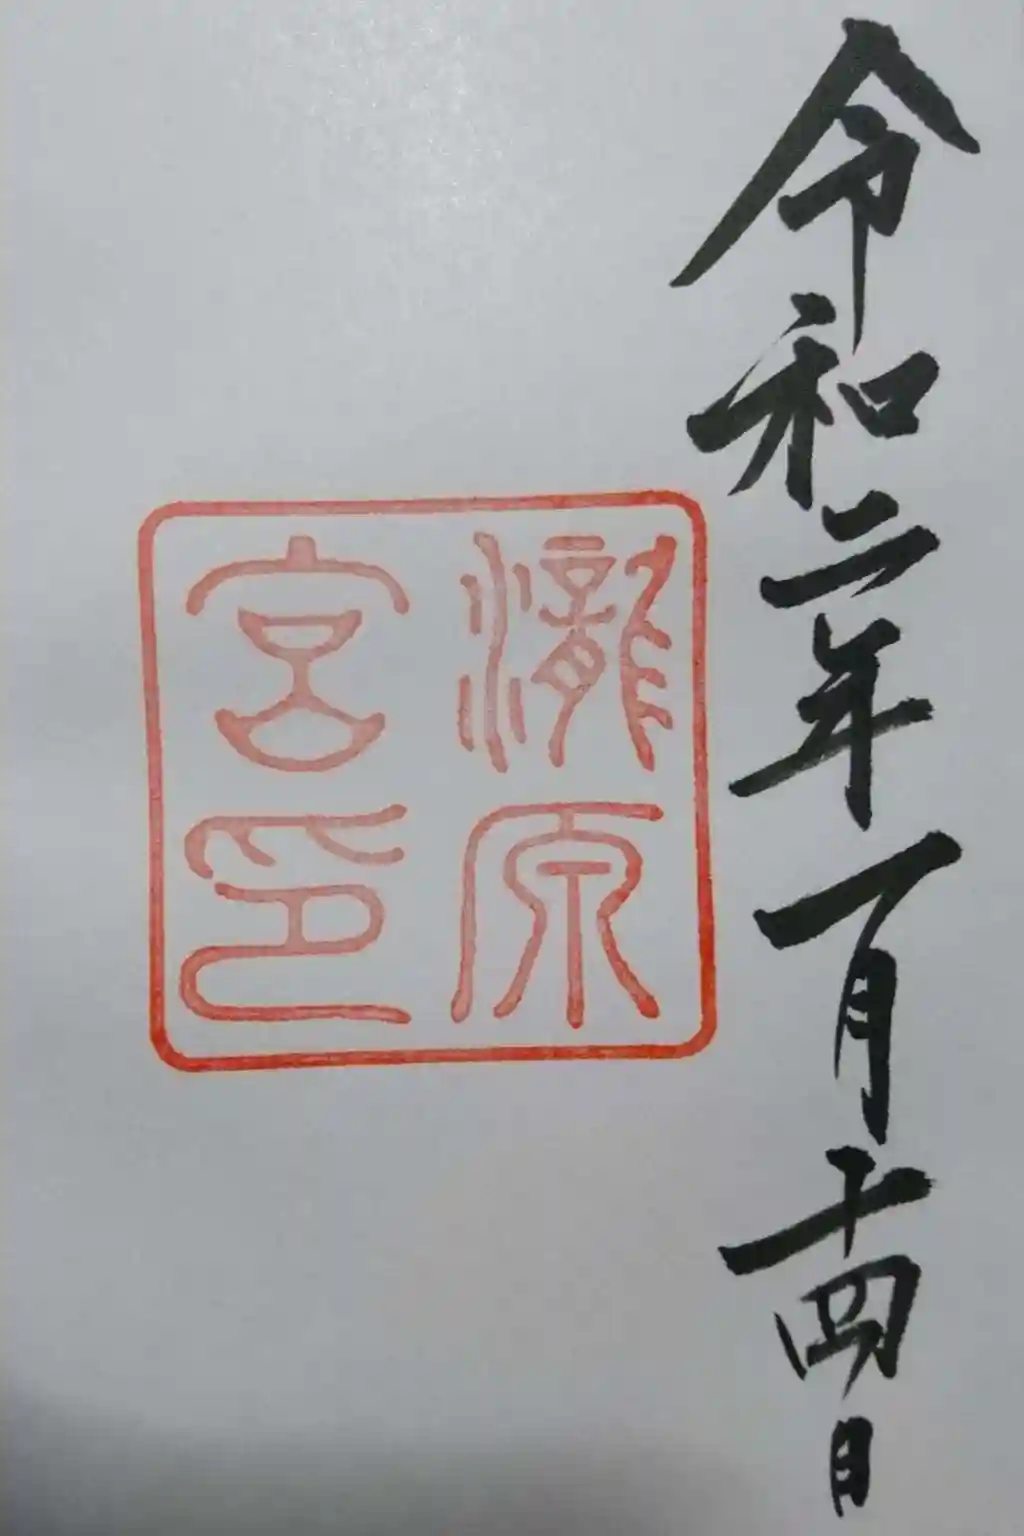 令和二年一月十四日
瀧原
宮印